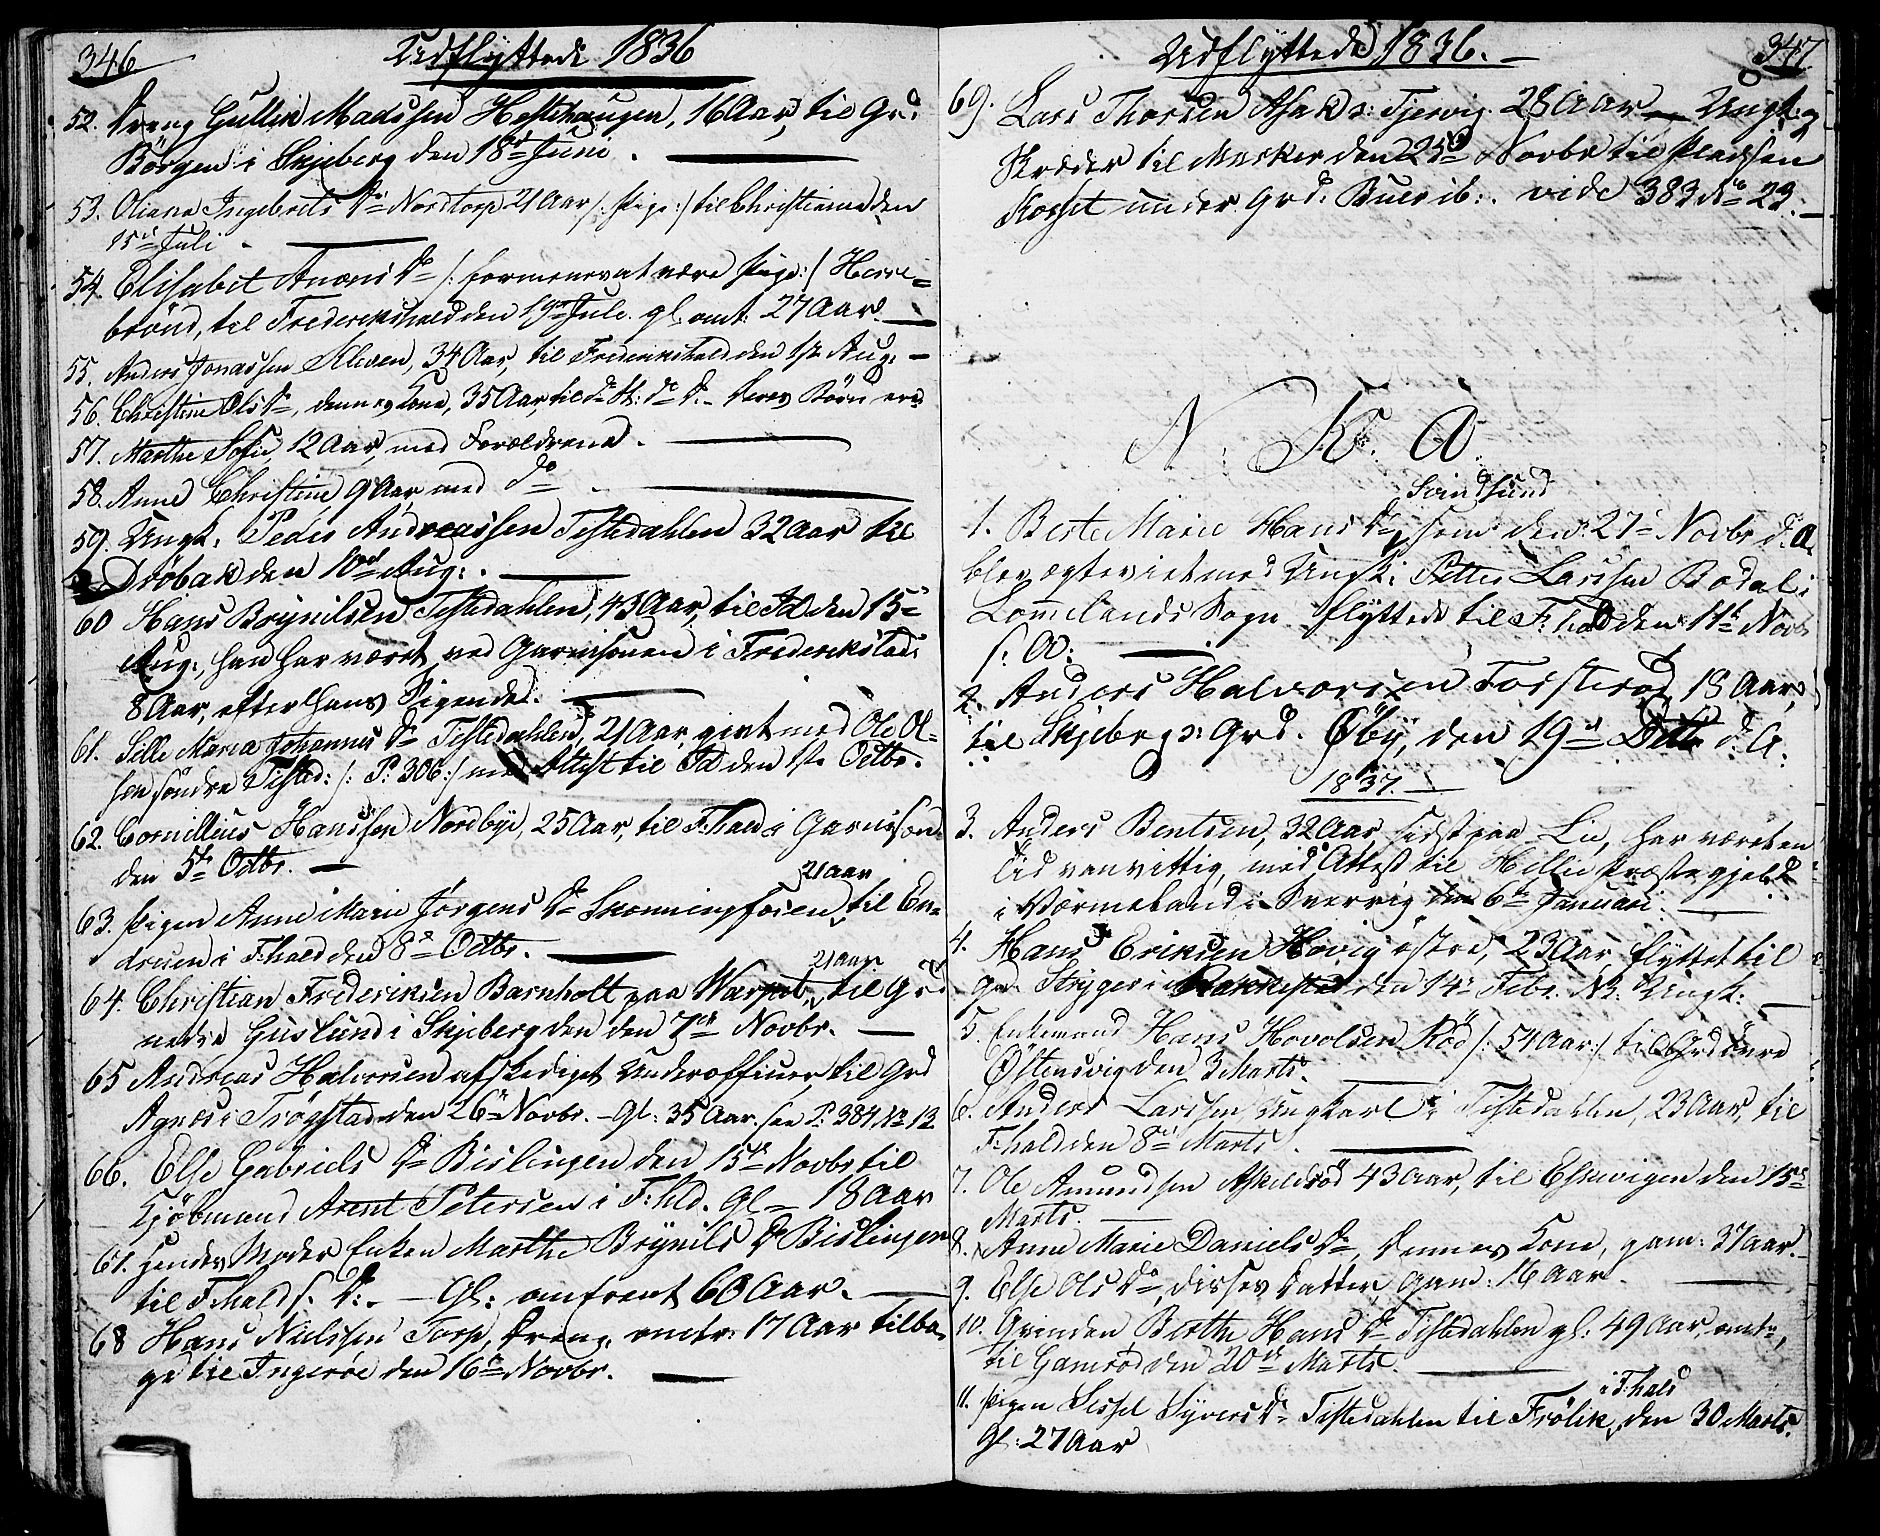 346
Udflyttede 1836
52. Dreng Gullik Madssen Hestehaugen, 16 Aar, til Grd:
Börgen i Skjeberg den 18de Juni.
53. Oliana Ingebrets Dr Nordtorp 21 Aar /: Pige:/ til Christiania den
15de Juli
54. Elisabet Dr /: formener at være Pige:/ Herre-
brönd, til Frederikshald den 19de Juli. gl. omt: 27 Aar.
55. Anders Jonassen Kleven, 34 Aar, til Frederikshald den 1ste Aug:
56. Christine Ols Dr, dennes Kone, 35 Aar, til do St: do D. Deres Börn ere
57. Marthe Sofie, 12 Aar, med Forældrene.
58. Anne Christine, 9 Aar med do
59. Ungk. Peder Andreassen Tistedahlen 32 Aar til
Dröbak den 10de Aug:.
60 Hans Brynilsen Tistedahlen, 43 Aar, til Id den 15de
Aug:, han har været ved Garnisonen i Frederikstad
8 Aar, efter hans Sigende.
61. Sille Maria Johannes Dr Tistedahlen, 21 Aar, givt med Ole Ol-
sen söndre Tisted: /: P: 306:/ med Attest til Id den 1ste Octbr.
62. Cornillius Hanssen Nordbye, 25 Aar, til F:hald i Garnison
den 5te Octbr.
21 Aar
63. Pigen Anne Marie Jörgens Dr Skonningfosen, til En-
druen i F:hald den 8de Octbr.
21 Aar.
64. Christian Frederiksen Barnholt paa til Grd
nedre Guslund i Skjeberg den 7de Novbr.
65 Andreas Halvorsen afskediget Underofficer, til Grd
Agnes i Trögstad den 26de Novbr. - Gl: 35 Aar. see P: 384 No 12
66. Else Gabriels Dr Bislingen den 15de Novbr til
Kjöbmand Arent Petersen i F:hld. Gl - 18 Aar
67. Hendes Moder Enken Marthe Brynils Dr Bislingen
til F:hald s: D:. - Gl: omtrent 60 Aar.
68 Hans Nielssen Torp, Dreng, omtr: 17 Aar tilba-
ge til Ingeröe den 16de Novbr.
347
Udflyttede 1836.
69. Lars Thorsen Asak s: Tjervig. 28 Aar Ungk: og
Skræder til Marker den 25de Novbr til Pladsen
Kosset under Grd: Buer ib:. vide 383 No 23.
N. K. O.
Svindsund
1. Berte Marie Hans Dr, som den 27de Novbr d: A.
blev ægteviet med Ungk: Petter Larssen Bodal i
Lommelands Sogn flyttede til F:hald den 11te Novbr
s: A:
2. Anders Halvorsen Torsteröd 19 Aar,
til Skjebergs: Grd. Øby, den 19de d: A:
1837.
3. Anders Bentsen, 32 Aar, sidst paa Lie, har været en
Tid vanvittig, med Attest til Hillie Præstegjeld
i Værmeland i Sverrig den 6te Januari.
4. Hans Eriksen Hovig östre, 23 Aar flyttet til
Grd Stryger i Rakkestad den 14de Febr. NB: Ungk:
5. Enkemand Hans Hovolsen Röd /: 54 Aar:/ til Grd övre
Östensvig den 3 Marts.
6. Anders Larssen Ungkarl i Tistedahlen, 23 Aar, til
F:hald den 8de Marts.
7. Ole Amundsen Askelsröd 43 Aar, til Eskevigen den 15de
Marts.
8. Anne Marie Daniels Dr, dennes Kone, gam: 37 Aar.
9. Else Ols Dr, disses Datter, gam: 16 Aar.
10. Qvinden Berthe Hans Dr Tistedahlen gl: 49 Aar, omtr,
til Gamröd den 20de Marts.
i F:hald
11. Pigen Sissel Syvers Dr Tistedahlen til Frölik, den 30 Marts.
Gl: 27 Aar